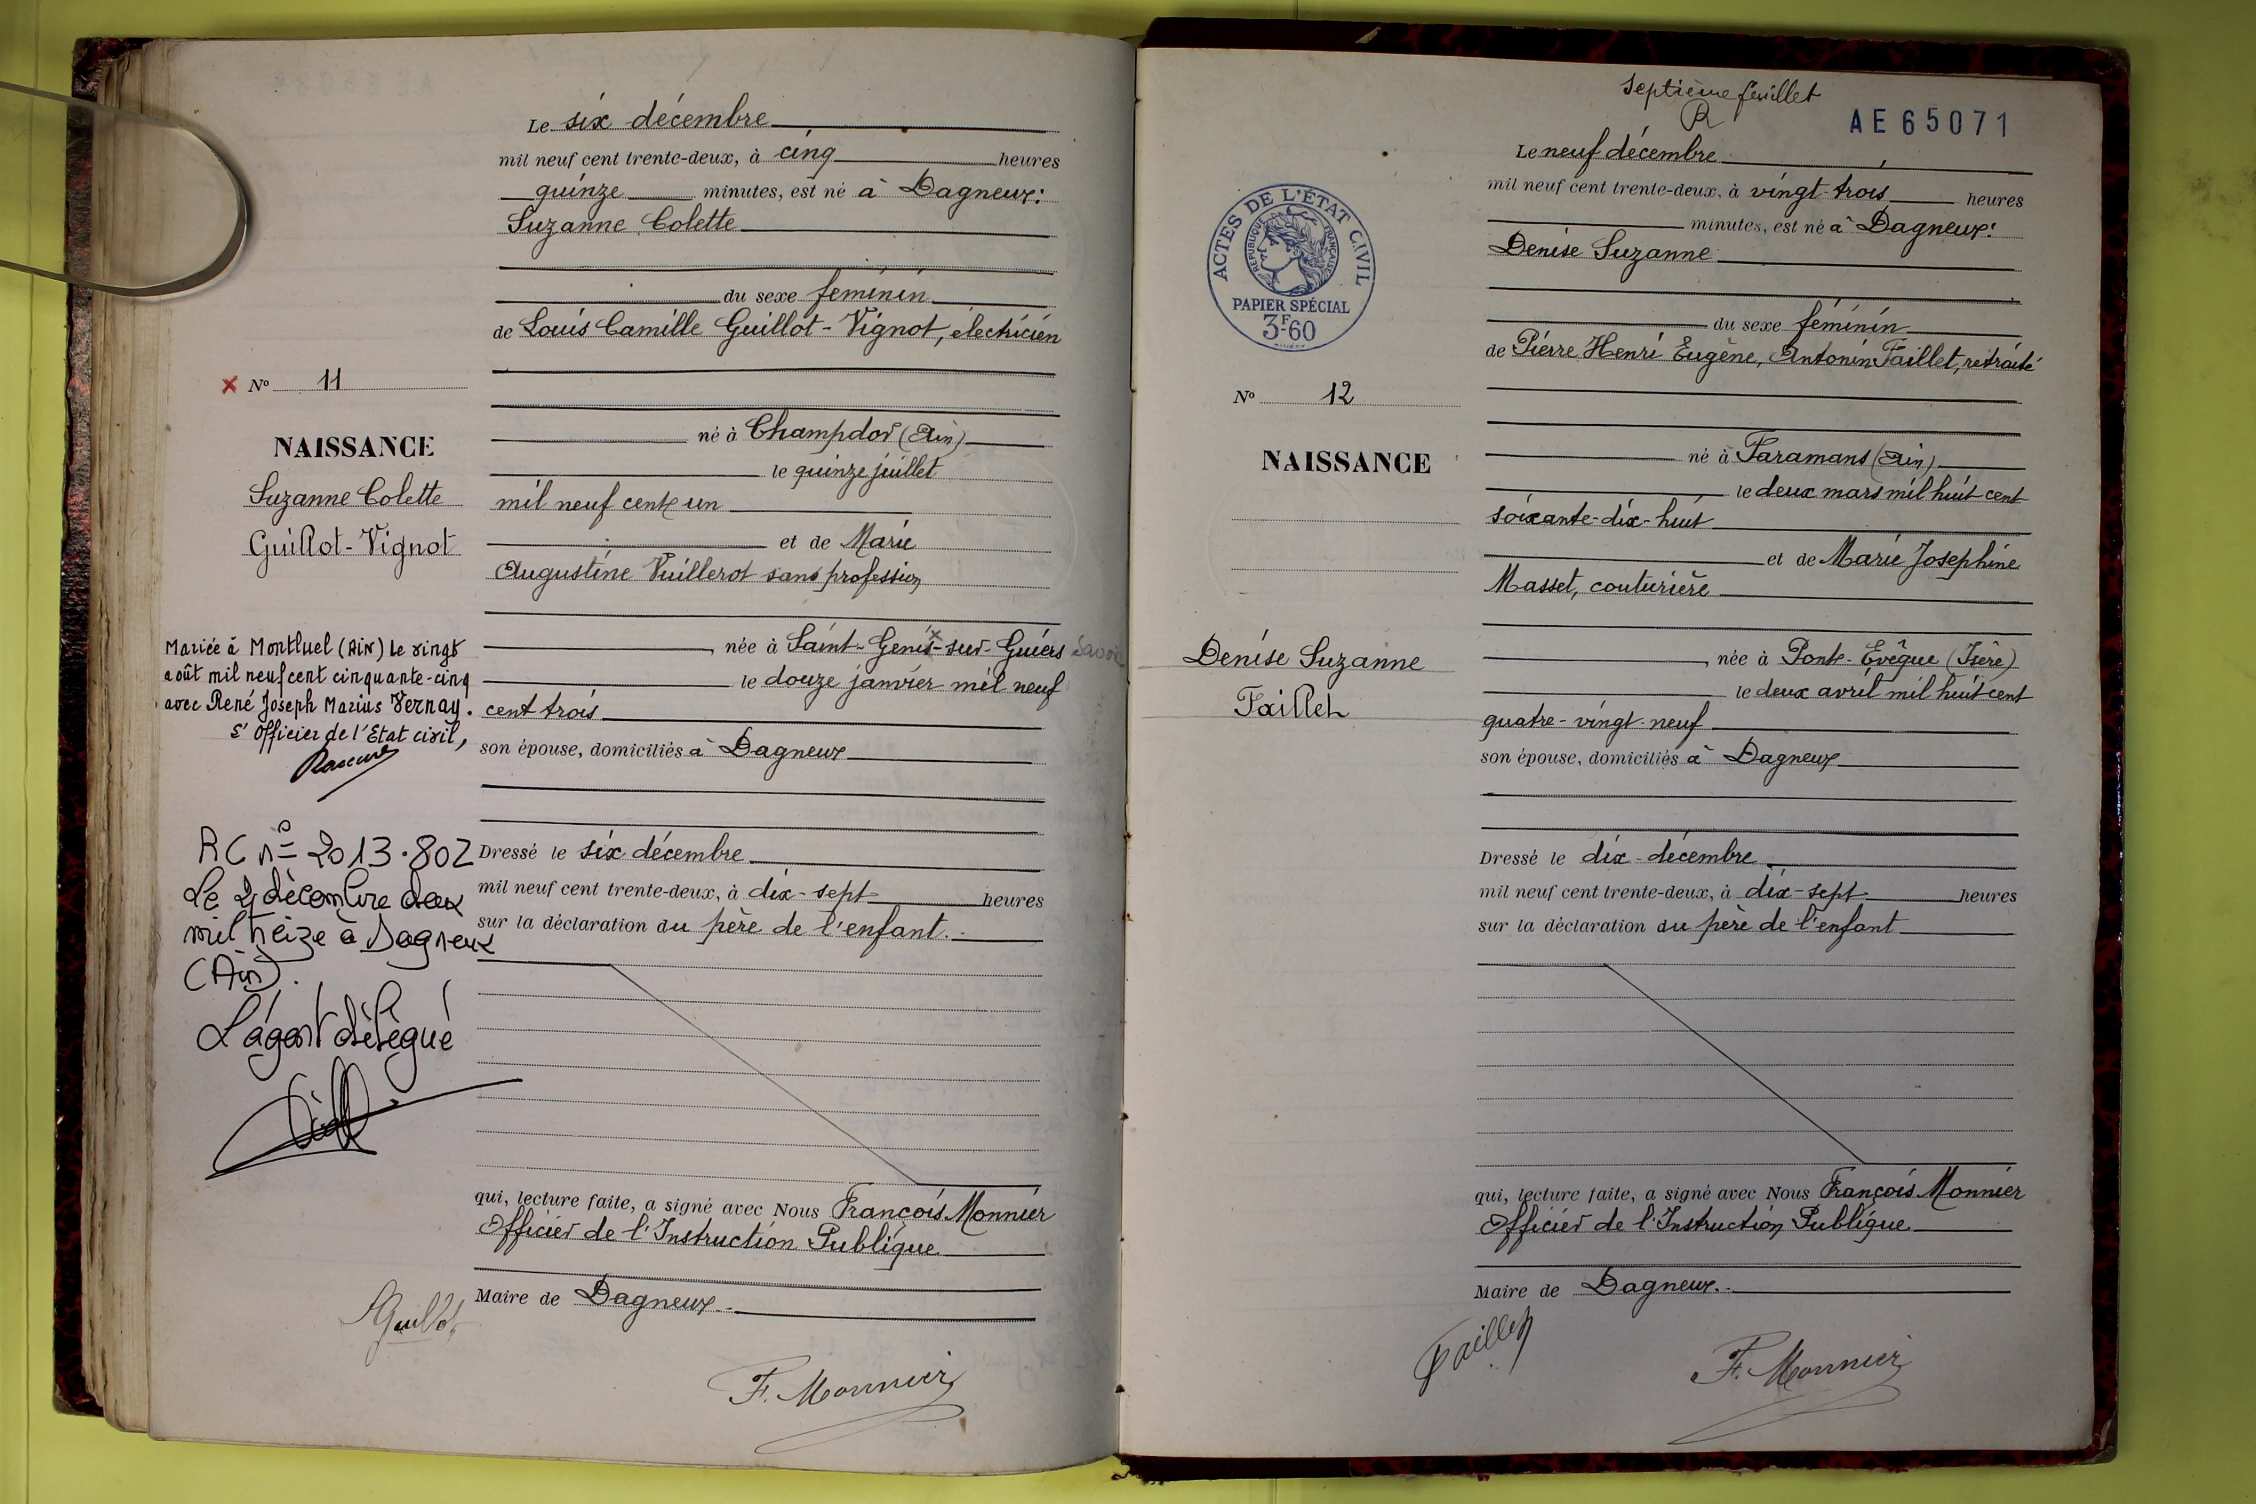 Le six décembre
mil neuf cent trente-deux, à cinq heures
quinze minutes, est né à Dagneux:
Suzanne Colette
du sexe féminin
de Louis Camille Guillot-Vignot, électricien
né à Champdor (Ain)
le quinze juillet
mil neuf cent un
et de Marie
Augustine Vuillerot sans profession
née à Saint-Genis-sur-Guiers Savoie
le douze janvier mil neuf
cent trois
son épouse, domiciliés à Dagneux
Dressé le six décembre
mil neuf cent trente-deux, à dix-sept heures
sur la déclaration du père de l'enfant.
qui, lecture faite, a signé avec Nous François Monnier
Officier de l'Instruction Publique
Maire de Dagneux
Guillot
F. Monnier
x No 11
NAISSANCE
Suzanne Colette
Guillot-Vignot
Mariée à Montluel (Ain) le vingt
août mil neuf cent cinquante-cinq
avec René Joseph Marius Vernay.
L'officier de l'Etat civil,
RC n° 2013.802
Le 2 décembre deux
mil treize à Dagneux
(Ain).
L'agent délégué
Septième feuillet
AE65071
Le neuf décembre
mil neuf cent trente-deux, à vingt-trois heures
minutes, est né à Dagneux:
Denise Suzanne
du sexe féminin
de Pierre Henri Eugène, Antonin Faillet, retraité
né à Faramans (Ain)
le deux mars mil huit cent
soixante-dix-huit
et de Marie Josephine
Masset, couturière
née à Pont-Evêque (Isère)
le deux avril mil huit cent
quatre-vingt-neuf
son épouse, domiciliés à Dagneux
Dressé le dix-décembre
mil neuf cent trente-deux, à dix-sept heures
sur la déclaration du père de l'enfant
qui, lecture faite, a signé avec Nous François Monnier
Officier de l'Instruction Publique
Maire de Dagneux.
Faillet
F. Monnier
ACTES DE L'ÉTAT CIVIL
RÉPUBLIQUE FRANÇAISE
PAPIER SPÉCIAL
3F60
No 12
NAISSANCE
Denise Suzanne
Faillet